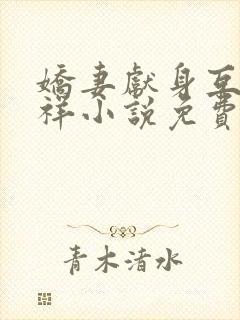 嬌妻獻身互
祥小說免費
青木渚水